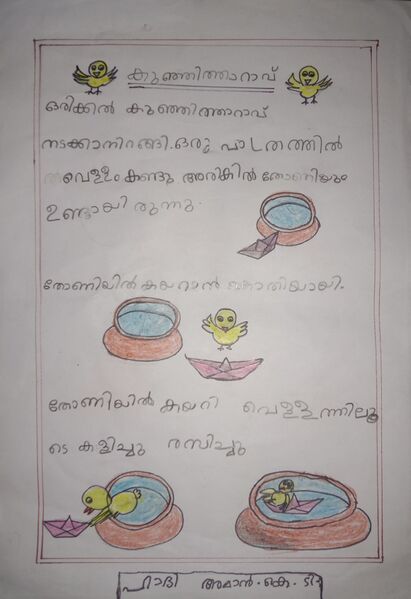 കുഞ്ഞിത്താറാവ്
ഒരിക്കൽ കുഞ്ഞിത്താറാവ്
നടക്കാനിറങ്ങി. ഒരു പാത്രത്തിൽ
വെള്ളം കണ്ടു അരികിൽ തോണിയും
ഉണ്ടായിരുന്നു.
തോണിയിൽ കയറാൻ കൊതിയായി.
തോണിയിൽ കയറി വെള്ളത്തിലൂ
ടെ കളിച്ചു രസിച്ചു
ഹാദി അമാൻ. കെ. ടി